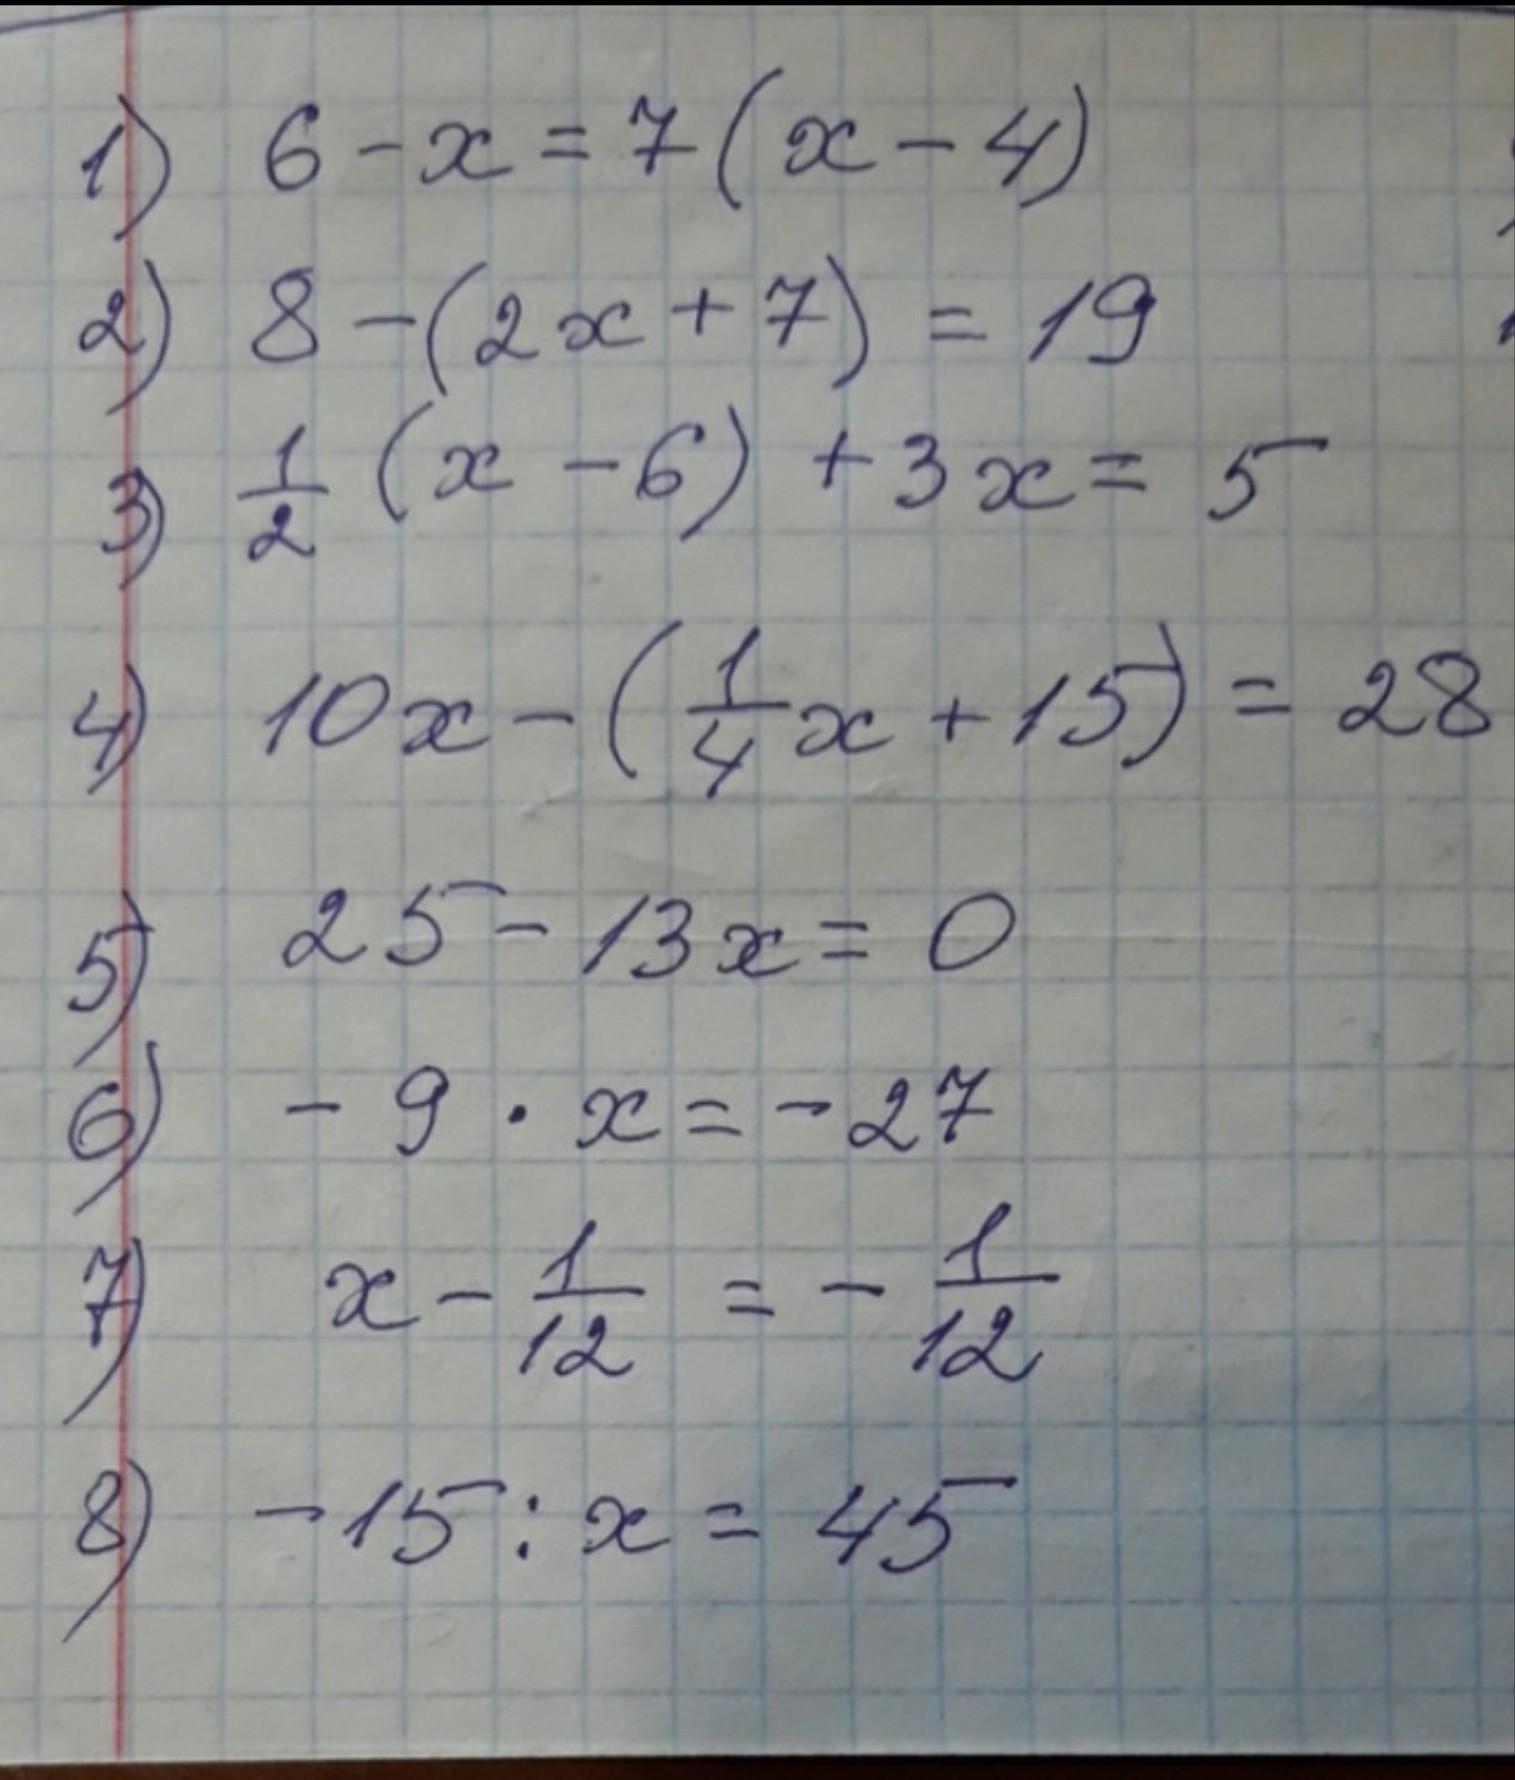 1) 6 - x = 7 (x - 4)
2) 8 - (2x + 7) = 19
3) 1/2 (x - 6) + 3x = 5
4) 10x - (1/4 x + 15) = 28
5) 25 - 13x = 0
6) - 9 · x = - 27
7) x - 1/12 = - 1/12
8) - 15 : x = 45